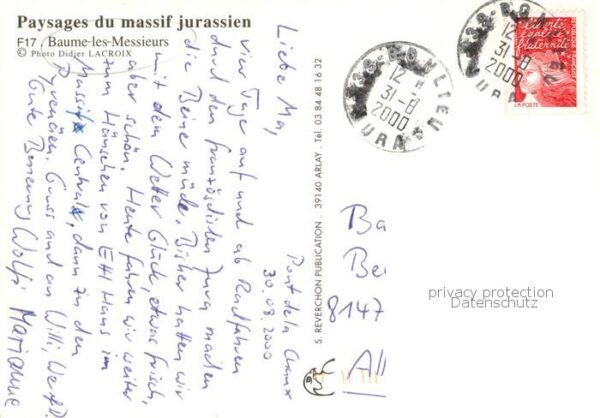 Paysages du massif jurassien
F17, Baume-les-Messieurs
© Photo Didjer LACROIX
Pont de la Chaux
30.08.2000
Liebe Ma,
vier Tage auf und ab Radfahren
durch den französischen Jura machen
die Beine müde. Bisher hatten wir
mit dem Wetter Glück, etwas frisch,
aber schön. Heute fahren wir weiter
zum Häuschen von Hans im
Massif Central, dann in den
Pyrenäen. Gruss auch an Willi,
Gute Besserung Wolfi Marianne
S. REVERCHON PUBLICATION . 39140 ARLAY Tél. 03 84 48 16 32
39-DOULIEU
12 H
31-8
2000
JURA
39-DOULIEU
12
31-8
2000
liberté
égalité
fraternité
LA POSTE
Ba
Be
8147
All
privacy protection
Datenschutz